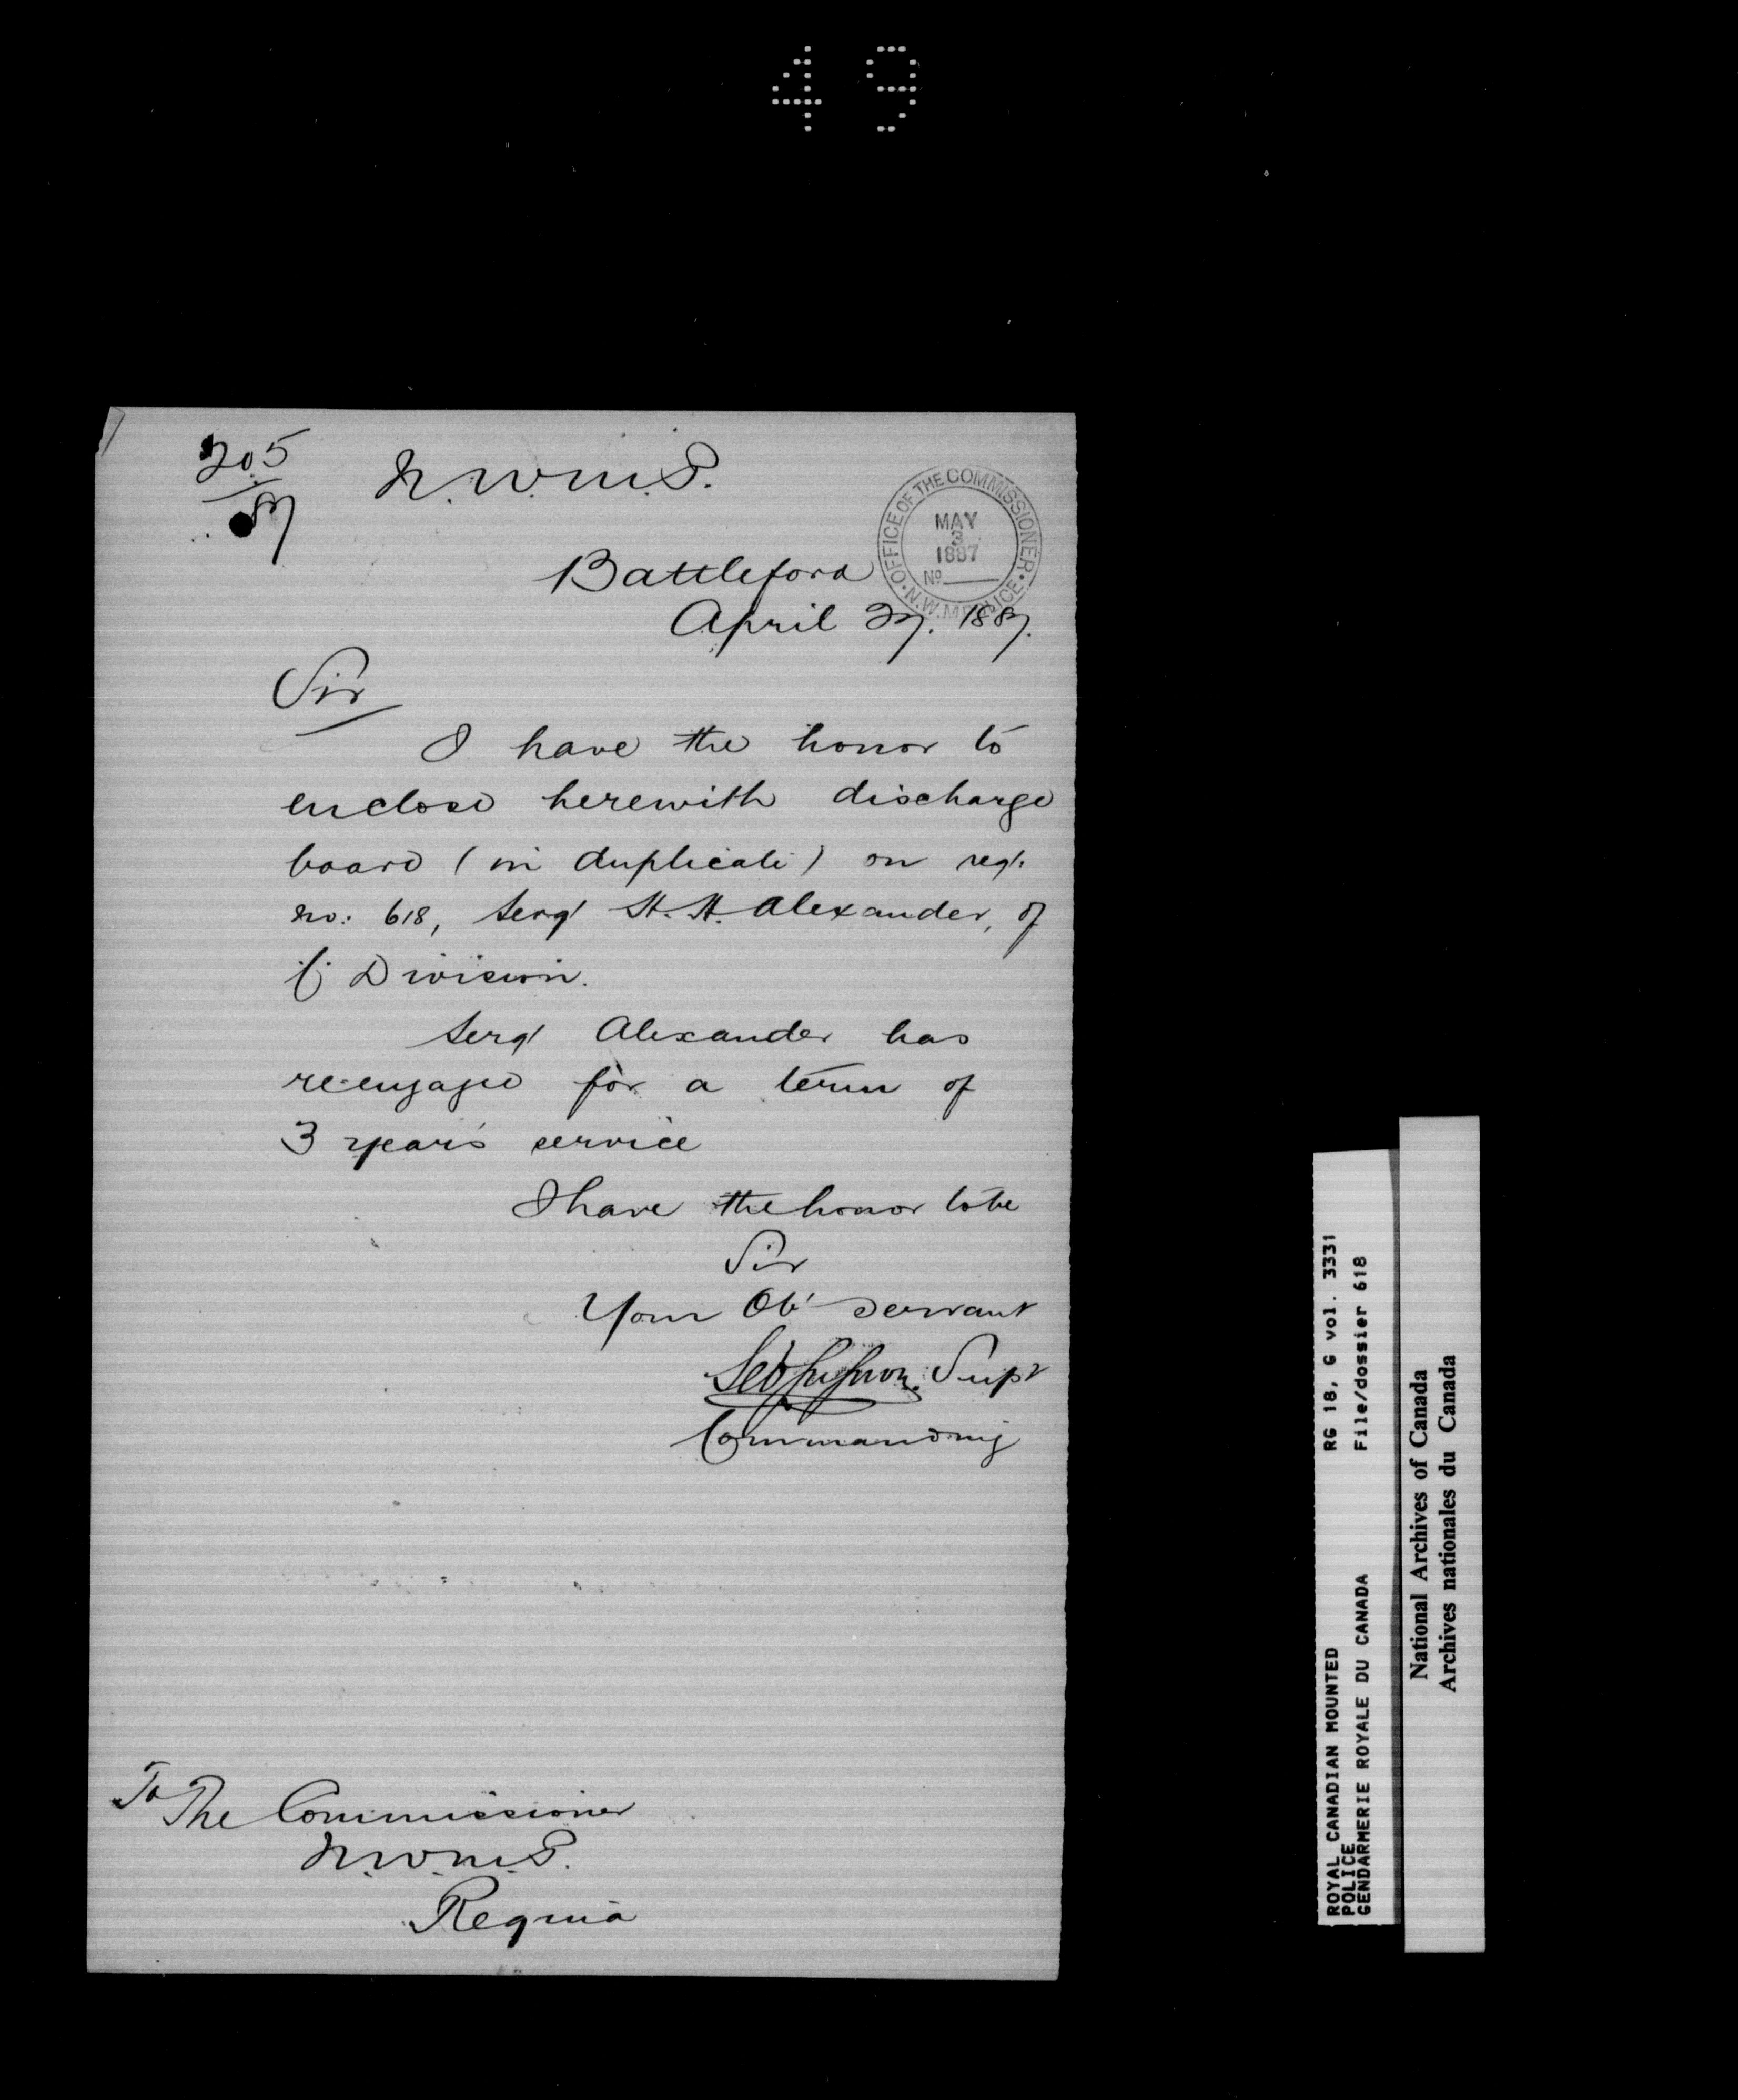 4 9
205
/87
N.W.M.P.
OFFICE OF THE COMMISSIONER
MAY
3
1887
No
N.W.M. POLICE
Battleford
April 27. 1887.
Sir
I have the honor to
enclose herewith discharge
board (in duplicate) on regt.
no: 618, Sergt H.H. Alexander, of
'C' Division.
Sergt Alexander has
re-engaged for a term of
3 year's service
I have the honor to be
Sir
Your Obt servant
Supt
Commanding
To The Commissioner
N.W.M.P.
Regina
ROYAL CANADIAN MOUNTED RG 18, G vol. 3331
POLICE File/dossier 618
GENDARMERIE ROYALE DU CANADA
National Archives of Canada
Archives nationales du Canada